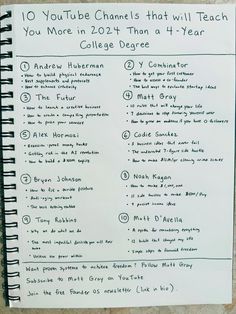 10 YouTube Channels that will Teach
You More in 2024 Than a 4-Year
College Degree
1 Andrew Huberman
• How to build physical endurance
• Best supplements and protocols
• How to enhance creativity
2 Y Combinator
• How to get your first customer
• How to access a co-founder
• The best ways to evaluate startup ideas
3 The Futur
• How to launch a creative business
• How to create a compelling
• How to price your services
4 Matt Gray
• 10 rules that will change your life
• 7 decisions to stop
• How to grow an audience if you have 0 followers
5 Alex Hormozi
• money hacks
• Getting rich in the AI revolution
• How to build a $100M
6 Codie Sanchez
• 3 business ideas that never fail
• The underrated 7-figure side hustle
• How to make
7 Bryan Johnson
• How to fix a
• Anti-aging workout
• The best
8 Noah Kagan
• How to make $1,000,000
• 10 side hustles to make
• 9 passive income ideas
9 Tony Robbins
• Why we do what we do
• The most impactful decision you will ever
make
• Unlock the power within
10 Matt D'Avella
• A system for remembering everything
• 12 habits that changed my life
• Simple steps to financial freedom
Want proven systems to achieve freedom? Follow Matt Gray
Subscribe to Matt Gray on YouTube
Join the free Founder OS newsletter (link in bio).